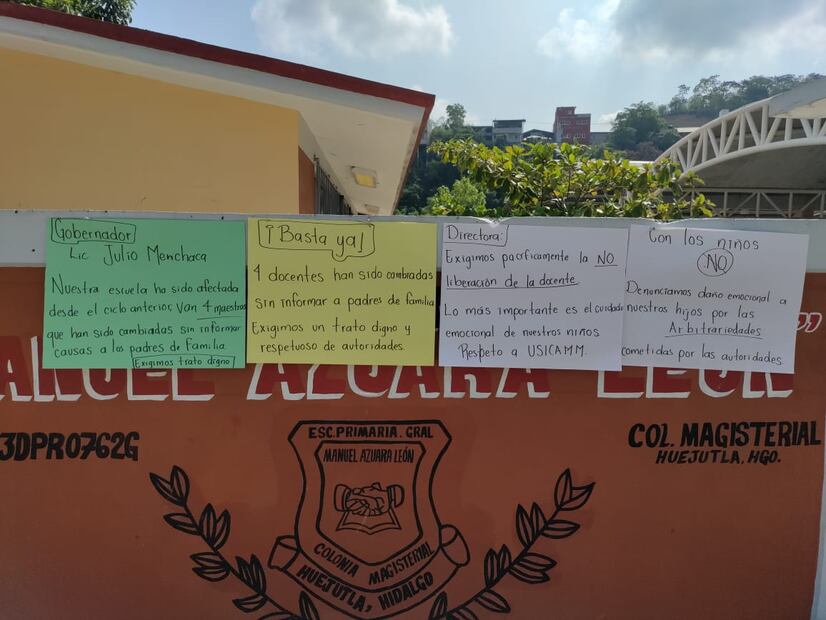 Gobernador
Lic Julio Menchaca
Nuestra escuela ha sido afectada
desde el ciclo anterior, van 4 maestros
que han sido cambiadas sin informar
causas a los padres de familia.
Exigimos trato digno
¡Basta ya!
4 docentes han sido cambiadas
sin informar a padres de familia
Exigimos un trato digno y
respetuoso de autoridades.
Directora:
Exigimos pacíficamente la NO
liberación de la docente
Lo más importante es el cuidado
emocional de nuestros niños
Respeto a USICAMM.
Con los niños
NO
Denunciamos daño emocional a
nuestros hijos por las
Arbitrariedades
cometidas por las autoridades
ANUEL AZUARA LEÓN"
3DPR0762G
COL. MAGISTERIAL
HUEJUTLA, HGO.
ESC. PRIMARIA. GRAL
MANUEL AZUARA LEÓN
COLONIA MAGISTERIAL
HUEJUTLA, HIDALGO